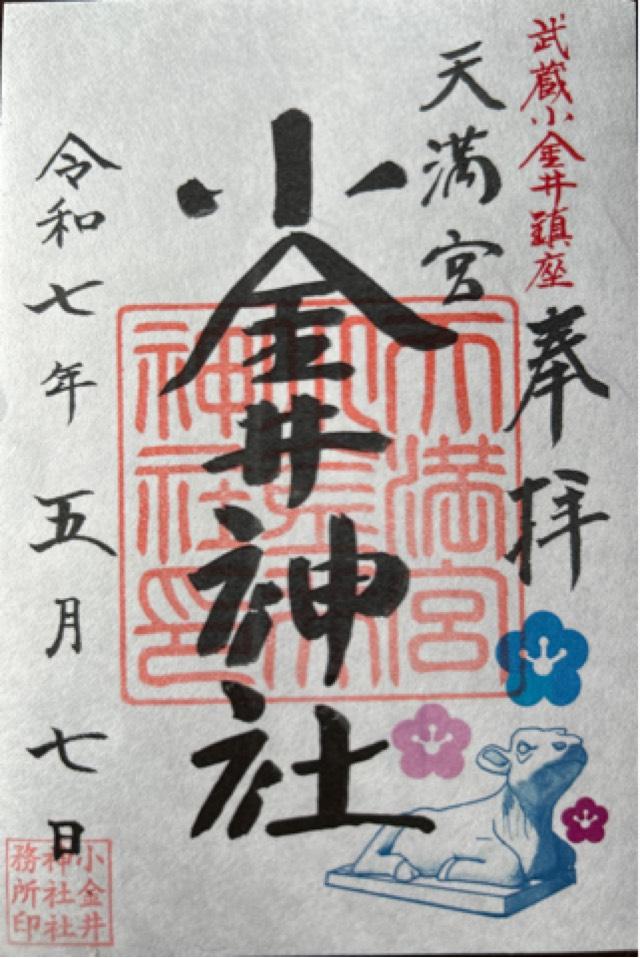 武蔵小金井鎮座
奉拝
天満宮
小金井神社
令和七年五月七日
天満宮
神社印
小金井
神社社
務所印